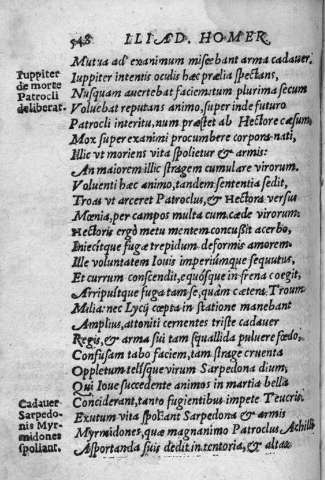 548 ILIAD. HOMER.
Mutua ad exanimum miscebant arma cadauer.
Iuppiter de morte Patrocli deliberat.
Iuppiter intentis oculis hæc prælia spectans,
Nusquam auertebat faciem: tum plurima secum
Voluebat reputans animo, super inde futuro
Patrocli interitu, num præstet ab Hectore cæsum,
Mox super exanimi procumbere corpora nati,
Illic ut moriens vita spolietur & armis:
An maiorem illic stragem cumulare virorum.
Voluenti hæc animo, tandem sententia sedit,
Troas ut arceret Patroclus, & Hectora versus
Mœnia, per campos multa cum cæde virorum.
Hectoris ergo metu mentem concussit acerbo,
Iniecitque fugæ trepidum deformis amorem.
Ille voluntatem Iouis imperiumque sequutus,
Et currum conscendit, equósque in frena coegit,
Arripuitque fugam se, quàm cætera Troum
Milia: nec Lycij cœpta in statione manebant
Amplius, attoniti cernentes triste cadauer
Regis, & arma sui tam squallida puluere fœdo,
Confusam tabo faciem, tam strage cruenta
Oppletum tellusque virum Sarpedona dium,
Qui Ioue succedente animos in martia bella
Conciderant, tanto fugientibus impete Teucris.
Cadauer Sarpedonis Myrmidones spoliant.
Exutum vita spoliant Sarpedona & armis
Myrmidones, quæ magnanimo Patroclus Achilli
Asportanda suis dedit in tentoria, & altas